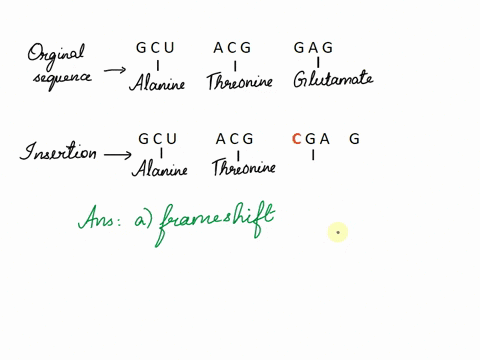 Orginal sequence → GCU ACG GAG
Alanine Threonine Glutamate
Insertion → GCU ACG CGA G
Alanine Threonine
Ans: a) frameshift